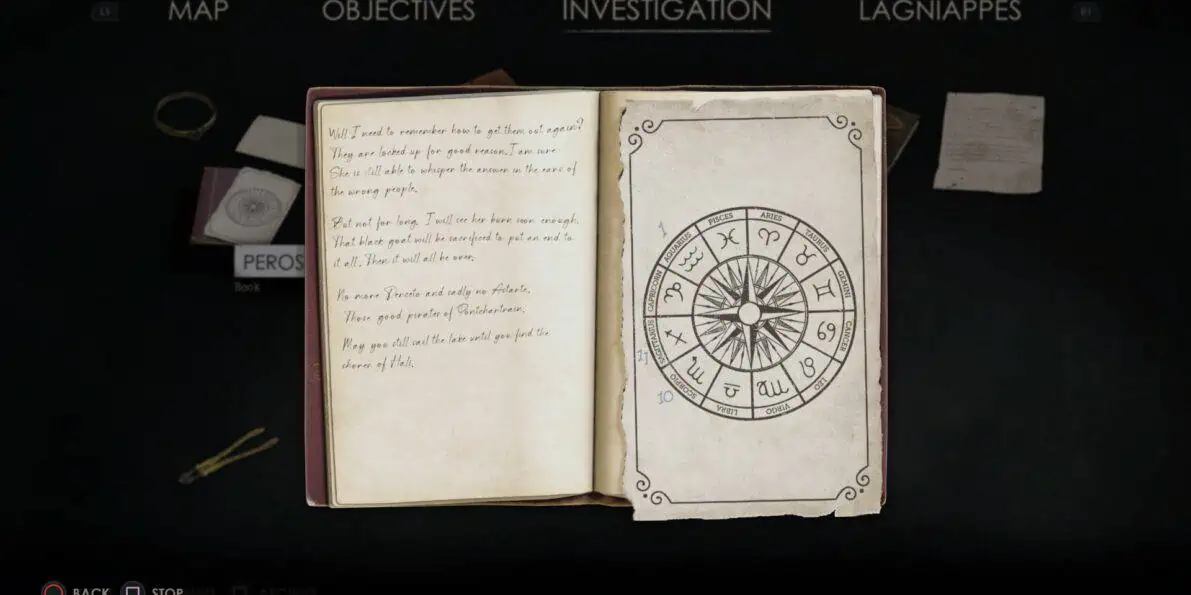 L1 MAP OBJECTIVES INVESTIGATION LAGNIAPPES R1
Well I need to remember how to get them out again?
They are locked up for good reason. I am sure
She is still able to whisper the answer in the ears of
the wrong people.
But not for long. I will see her burn soon enough.
That black goat will be sacrificed to put an end to
it all. Then it will all be over.
No more Derceto and sadly no Astarte.
Those good pirates of Pontchartrain.
May you still sail the lake until you find the
shores of Hali.
PEROS
Book
1
11
10
PISCES
ARIES
TAURUS
GEMINI
CANCER
LEO
VIRGO
LIBRA
SCORPIO
SAGITARIUS
CAPRICORN
AQUARIUS
BACK STOP